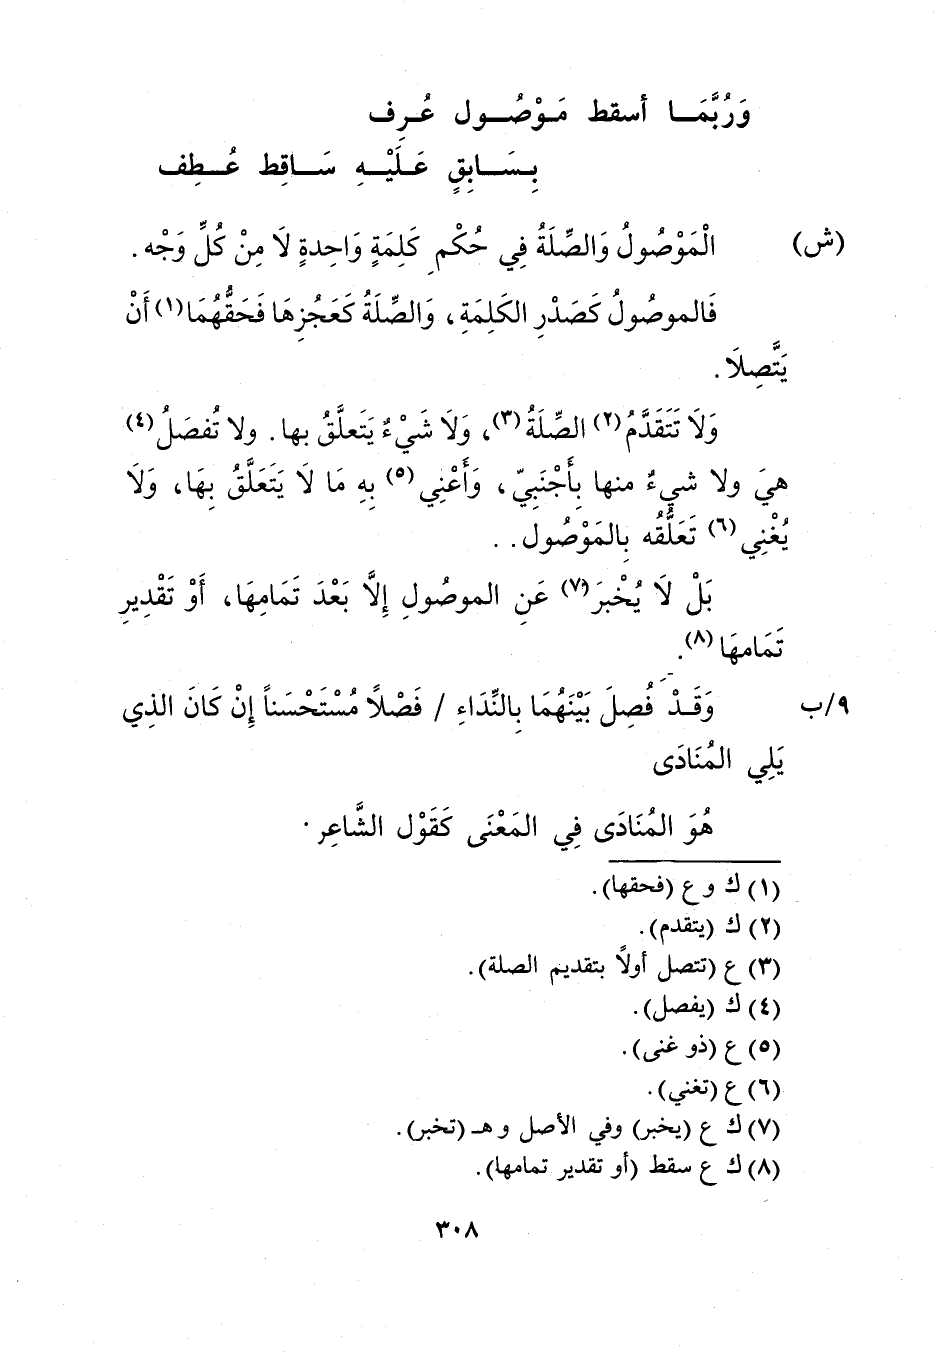 وَرُبَّمَا أسقط مَوْصُول عُرِف
بِسَابِقٍ عَلَيْهِ سَاقِط عُطِف
(ش) الْمَوْصُولُ وَالصِّلَةُ فِي حُكْمِ كَلِمَةٍ وَاحِدةٍ لَا مِنْ كُلِّ وَجْه.
فَالموصُولُ كَصَدْرِ الكَلِمَةِ، وَالصِّلَةُ كَعَجُزِهَا فَحَقُّهُمَا(١) أَنْ
يَتَّصِلَا.
وَلَا تَتَقَدَّمُ(٢) الصِّلَةُ(٣)، وَلَا شَيْءٌ يَتَعلَّقُ بها. ولا تُفصَلُ(٤)
هيَ ولا شيءٌ منها بِأَجْنَبِيّ، وَأَعْنِي(٥) بِهِ مَا لَا يَتَعَلَّقُ بِهَا، وَلَا
يُغْنِي(٦) تَعَلُّقُه بِالمَوْصُول..
بَلْ لَا يُخْبرَ(٧) عَنِ الموصُولِ إِلَّا بَعْدَ تَمَامِهَا، أَوْ تَقْدِيرِ
تَمَامهَا(٨).
٩/ب وَقَدْ فُصِلَ بَيْنَهُمَا بِالنِّدَاءِ / فَصْلاً مُسْتَحْسَناً إِنْ كَانَ الذِي
يَلِي المُنَادَى
هُوَ المُنَادَى فِي المَعْنَى كَقَوْل الشَّاعِر.
(١) ك و ع (فحقها).
(٢) ك (يتقدم).
(٣) ع (تتصل أولاً بتقديم الصلة).
(٤) ك (يفصل).
(٥) ع (ذو غنى).
(٦) ع (تغني).
(٧) ك ع (يخبر) وفي الأصل و هـ (تخبر).
(٨) ك ع سقط (أو تقدير تمامها).
٣٠٨